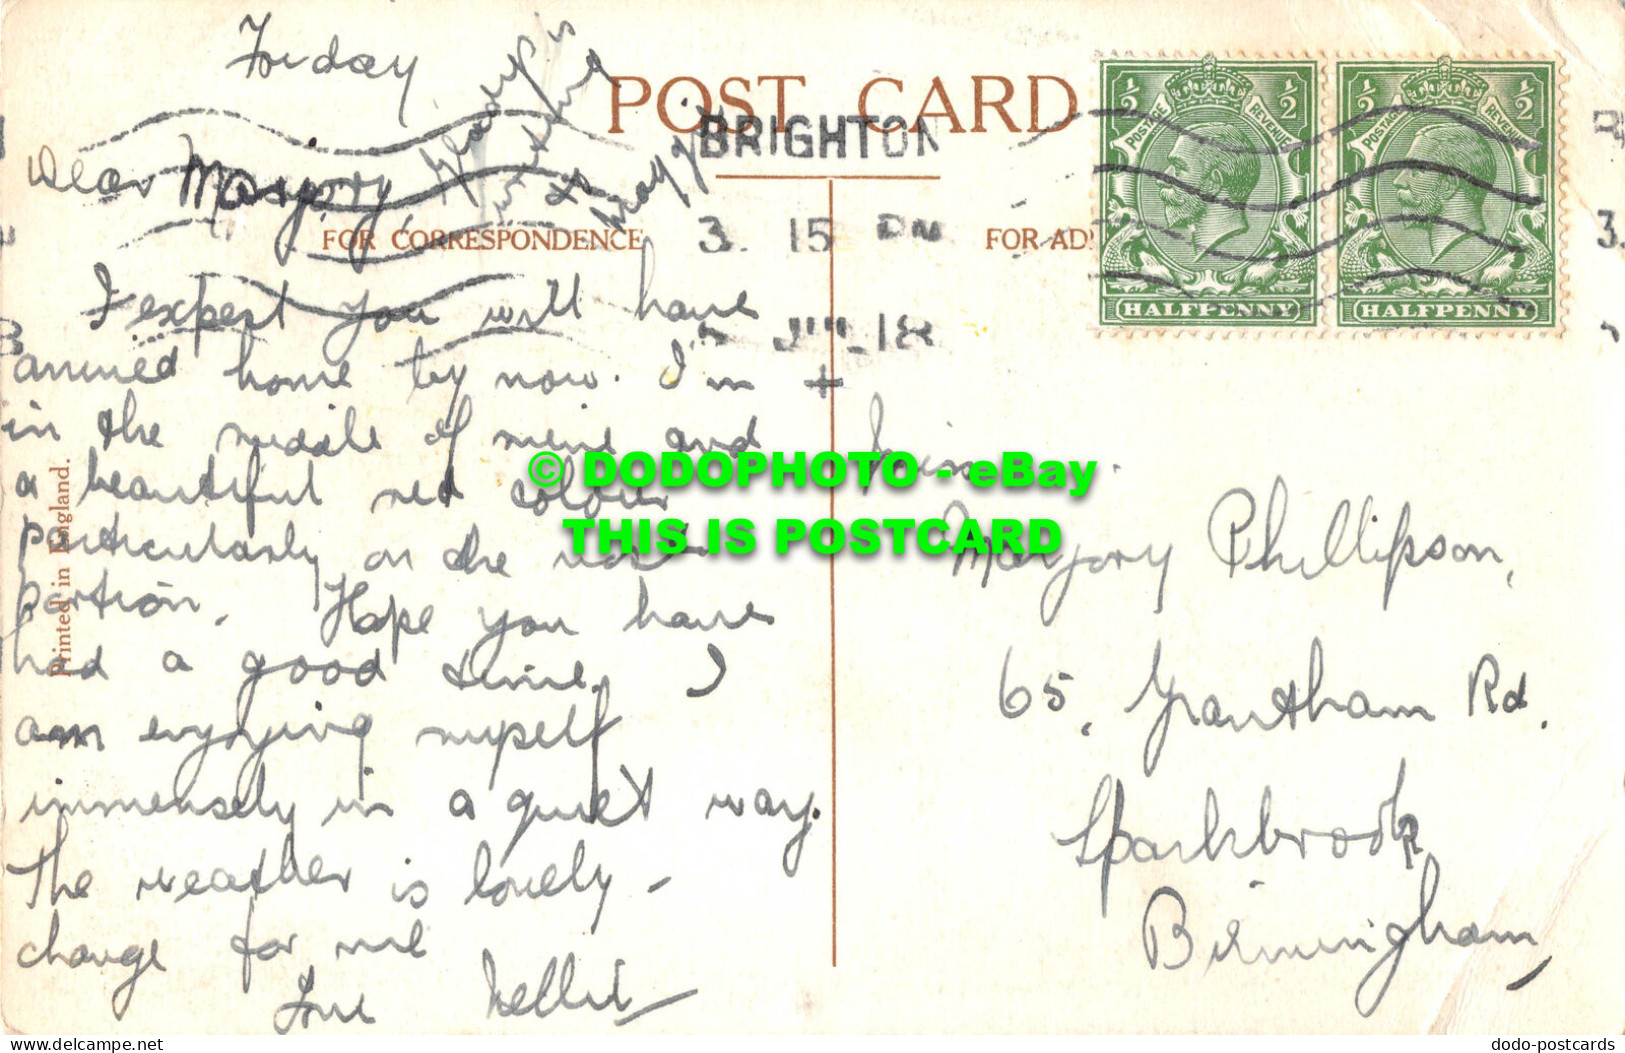 Friday
Gladys is
with me
POST CARD
BRIGHTON
Dear Marjory
FOR CORRESPONDENCE
3. 15 PM
FOR AD
I expect you will have
arrived home by now. I'm
in the middle of mine and
a beautiful red colour
particularly on the
portion. Hope you have
had a good time. I
am enjoying myself
immensely in a quiet way.
The weather is lovely -
change for me
Love Nellie
Printed in England.
18
POSTAGE REVENUE
1/2 1/2
HALFPENNY
POSTAGE REVENUE
1/2 1/2
HALFPENNY
3.
© DODOPHOTO - eBay
THIS IS POSTCARD
Miss
Marjory Phillipson,
65, Grantham Rd.
Sparkbrook
Birmingham
delcampe.net
dodo-postcards